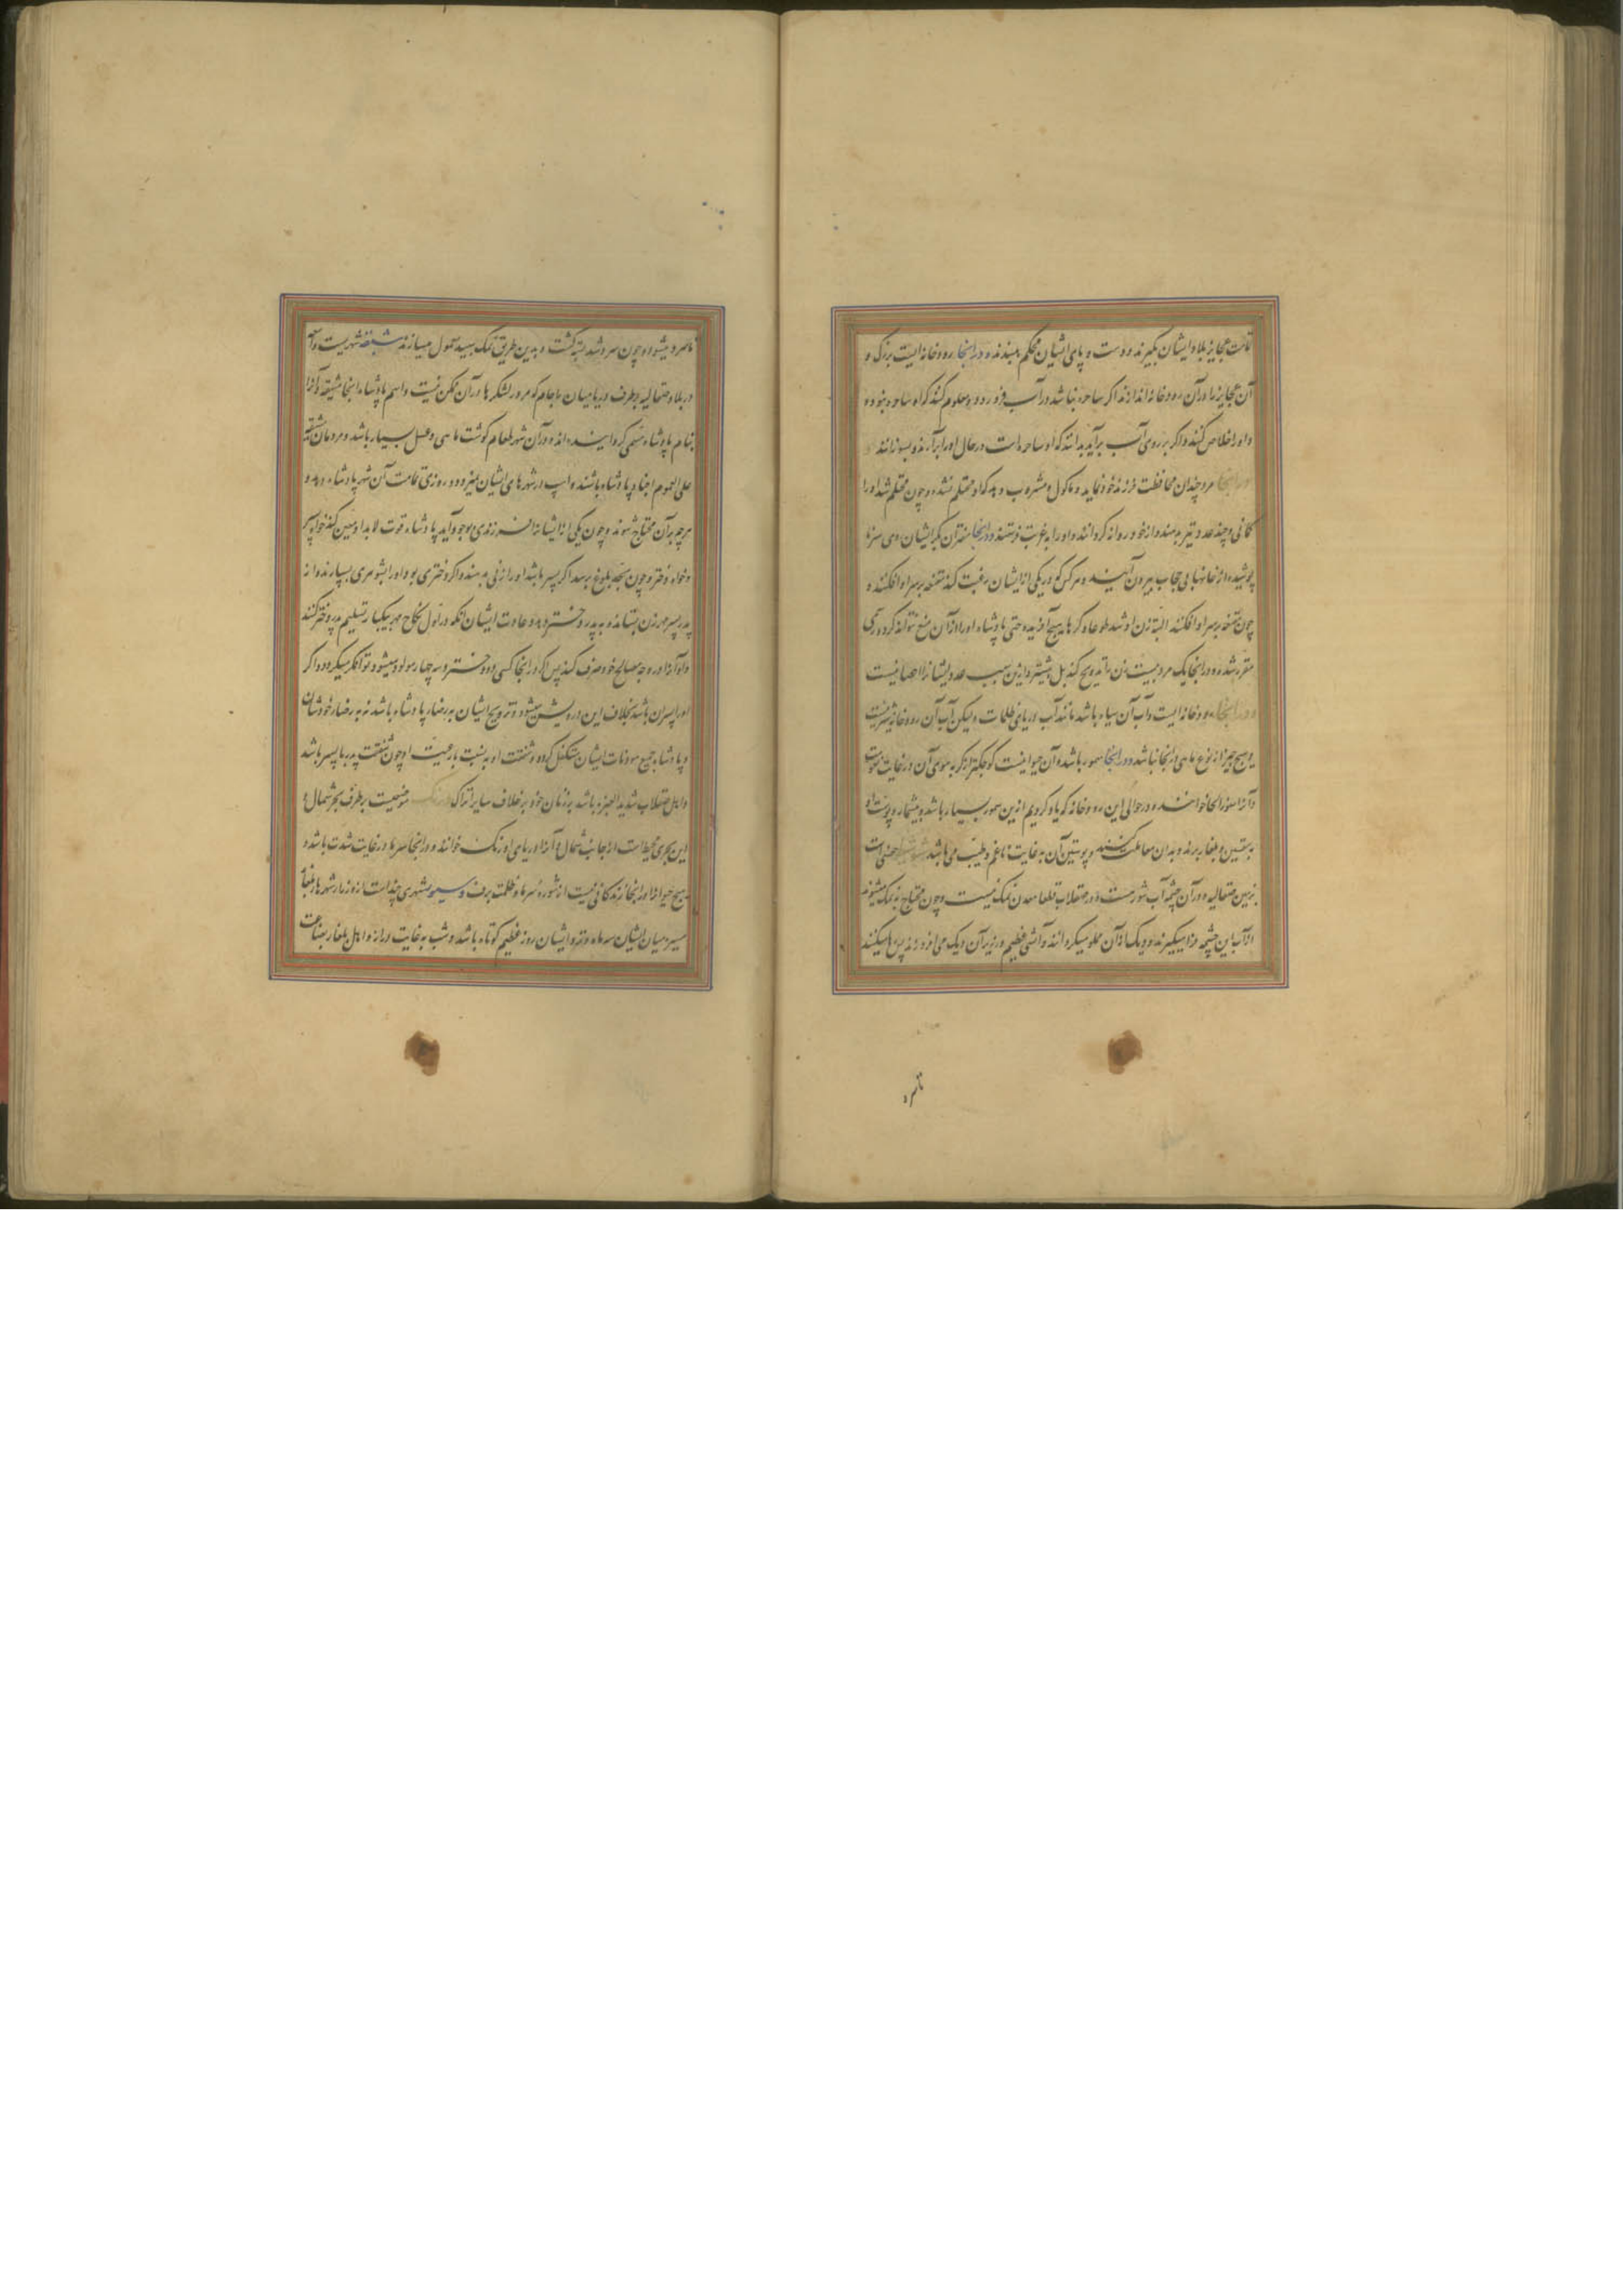 تمامت عجایز بلاد ایشان بگیرند و دست و پای ایشان محکم ببندند و در اینجا رودخانه ایست بزرک و
آن عجایز را در آن رودخانه اندازند اکر ساحره نباشد در آب فرو رود و معلوم کنند که او ساحره نبوده
و او را خلاص کنند و اکر بر روی آب برآید بدانند که او ساحره است در حال او را برآرند و بسوزانند
و در اینجا مرد چندان محافظت فرزند خود نماید و ماکول و مشروب دهد که او محتلم نشده و چون محتلم شد او را
کمانی و چند عدد تیر بدهند و از خود روانه کردانند و او را به غربت فرستند و در اینجا دختران بکر ایشان سرها
پوشیده از خانها بی حجاب بیرون آیند و هر کس که در یکی از ایشان رغبت کند مقنعه بر سر او افکند و
چون مقنعه بر سر او افکند البته زن او شد طوعا و کرها هیچ آفریده حتی پادشاه او را از آن منع نتواند کرد
مقرر شده و در اینجا یک مرد بیست زن را تزویج کند بل بیشتر و ازین سبب عدد ایشانرا احصا نیست
و در اینجا رودخانه ایست و آب آن سیاه باشد مانند آب دریای ظلمات و لیکن آب آن رودخانه شیرینست
و هیچ چیز از نوع ماهی در آنجا نباشد و در اینجا سمور باشد و آن حیوانیست کوچکتر از کربه موی آن در غایت نعومت
و آنرا سمور خوانند و در حوالی این رودخانه که یاد کردیم ازین سمور بسیار باشد و بیشمار و پوست او
به و بلغار برند و بدان معاملت کنند و پوستین آن به غایت ناعم و طیب می باشد حصنی است
بزمین صقالبه و در آن چشمه آب شور هست و در صقلاب قطعا معدن نمک نیست و چون محتاج به نمک میشوند
از آب این چشمه فرا میکیرند و دیک از آن مملو میکردانند و آتشی عظیم در زیر آن دیک می افروزند پس رها میکنند
تا سرد
تا سرد میشود و چون سرد شد بسته کشت و بدین طریق نمک سپید معمول میسازند شهریست
در بلاد صقالبه بطرف دریا میان آجام که مرور لشکرها در آن ممکن نیست و اسم پادشاه اینجا مشقه و آنرا
بنام پادشاه مسمی کردانیده اند و در آن شهر طعام کوشت ماهی و عسل بسیار باشد و مردمان مشقه
علی العموم اجناد پادشاه باشند و اسب در شهرهای ایشان و روزی تمامت آن شهر پادشاه دهد و
هر چه بر آن محتاج شوند و چون یکی از ایشانرا فرزندی بوجود آید پادشاه قوت لابد او معین کند خواه پسر
و خواه دختر و چون بحد بلوغ برسد اکر پسر باشد او را زنی بدهند و اکر دختری بود او را بشوهری بسپارند و از
پدر پسر مهر زن بستانند و به پدر دختر دهند و عادت ایشان آنکه در اول نکاح مهر بیکبار تسلیم پدر دختر کنند
و او آنرا در وجه مصالح خود صرف کند پس اکر در اینجا کسی را دو دختر و سه چهار مولود میشود توانکر میکردد و اکر
او را پسران باشد بخلاف این درویش میشود و تزویج ایشان به رضاء پادشاه باشد نه به رضاء خودشان
و پادشاه جمیع مؤونات ایشان متکفل کردد و شفقت او به نسبت با رعیت او چون شفقت پدر با پسر باشد
و اهل صقلاب شدید الغیره باشد بر زنان خود بر خلاف سایر اتراک موضعیست بر طرف بحر شمال و
این بحری محیط است از جانب شمال و آنرا دریای ورنک خوانند و در اینجا سرما در غایت شدت باشد و
هیچ حیوانرا در اینجا زندکانی نیست از شوره سرما و ظلمت برف و شهری چند است و زیاد شهرها بلغار
مسیر میان ایشان سه ماهه و نزد ایشان روز عظیم کوتاه باشد و شب به غایت دراز و اهل بلغار بضاعت